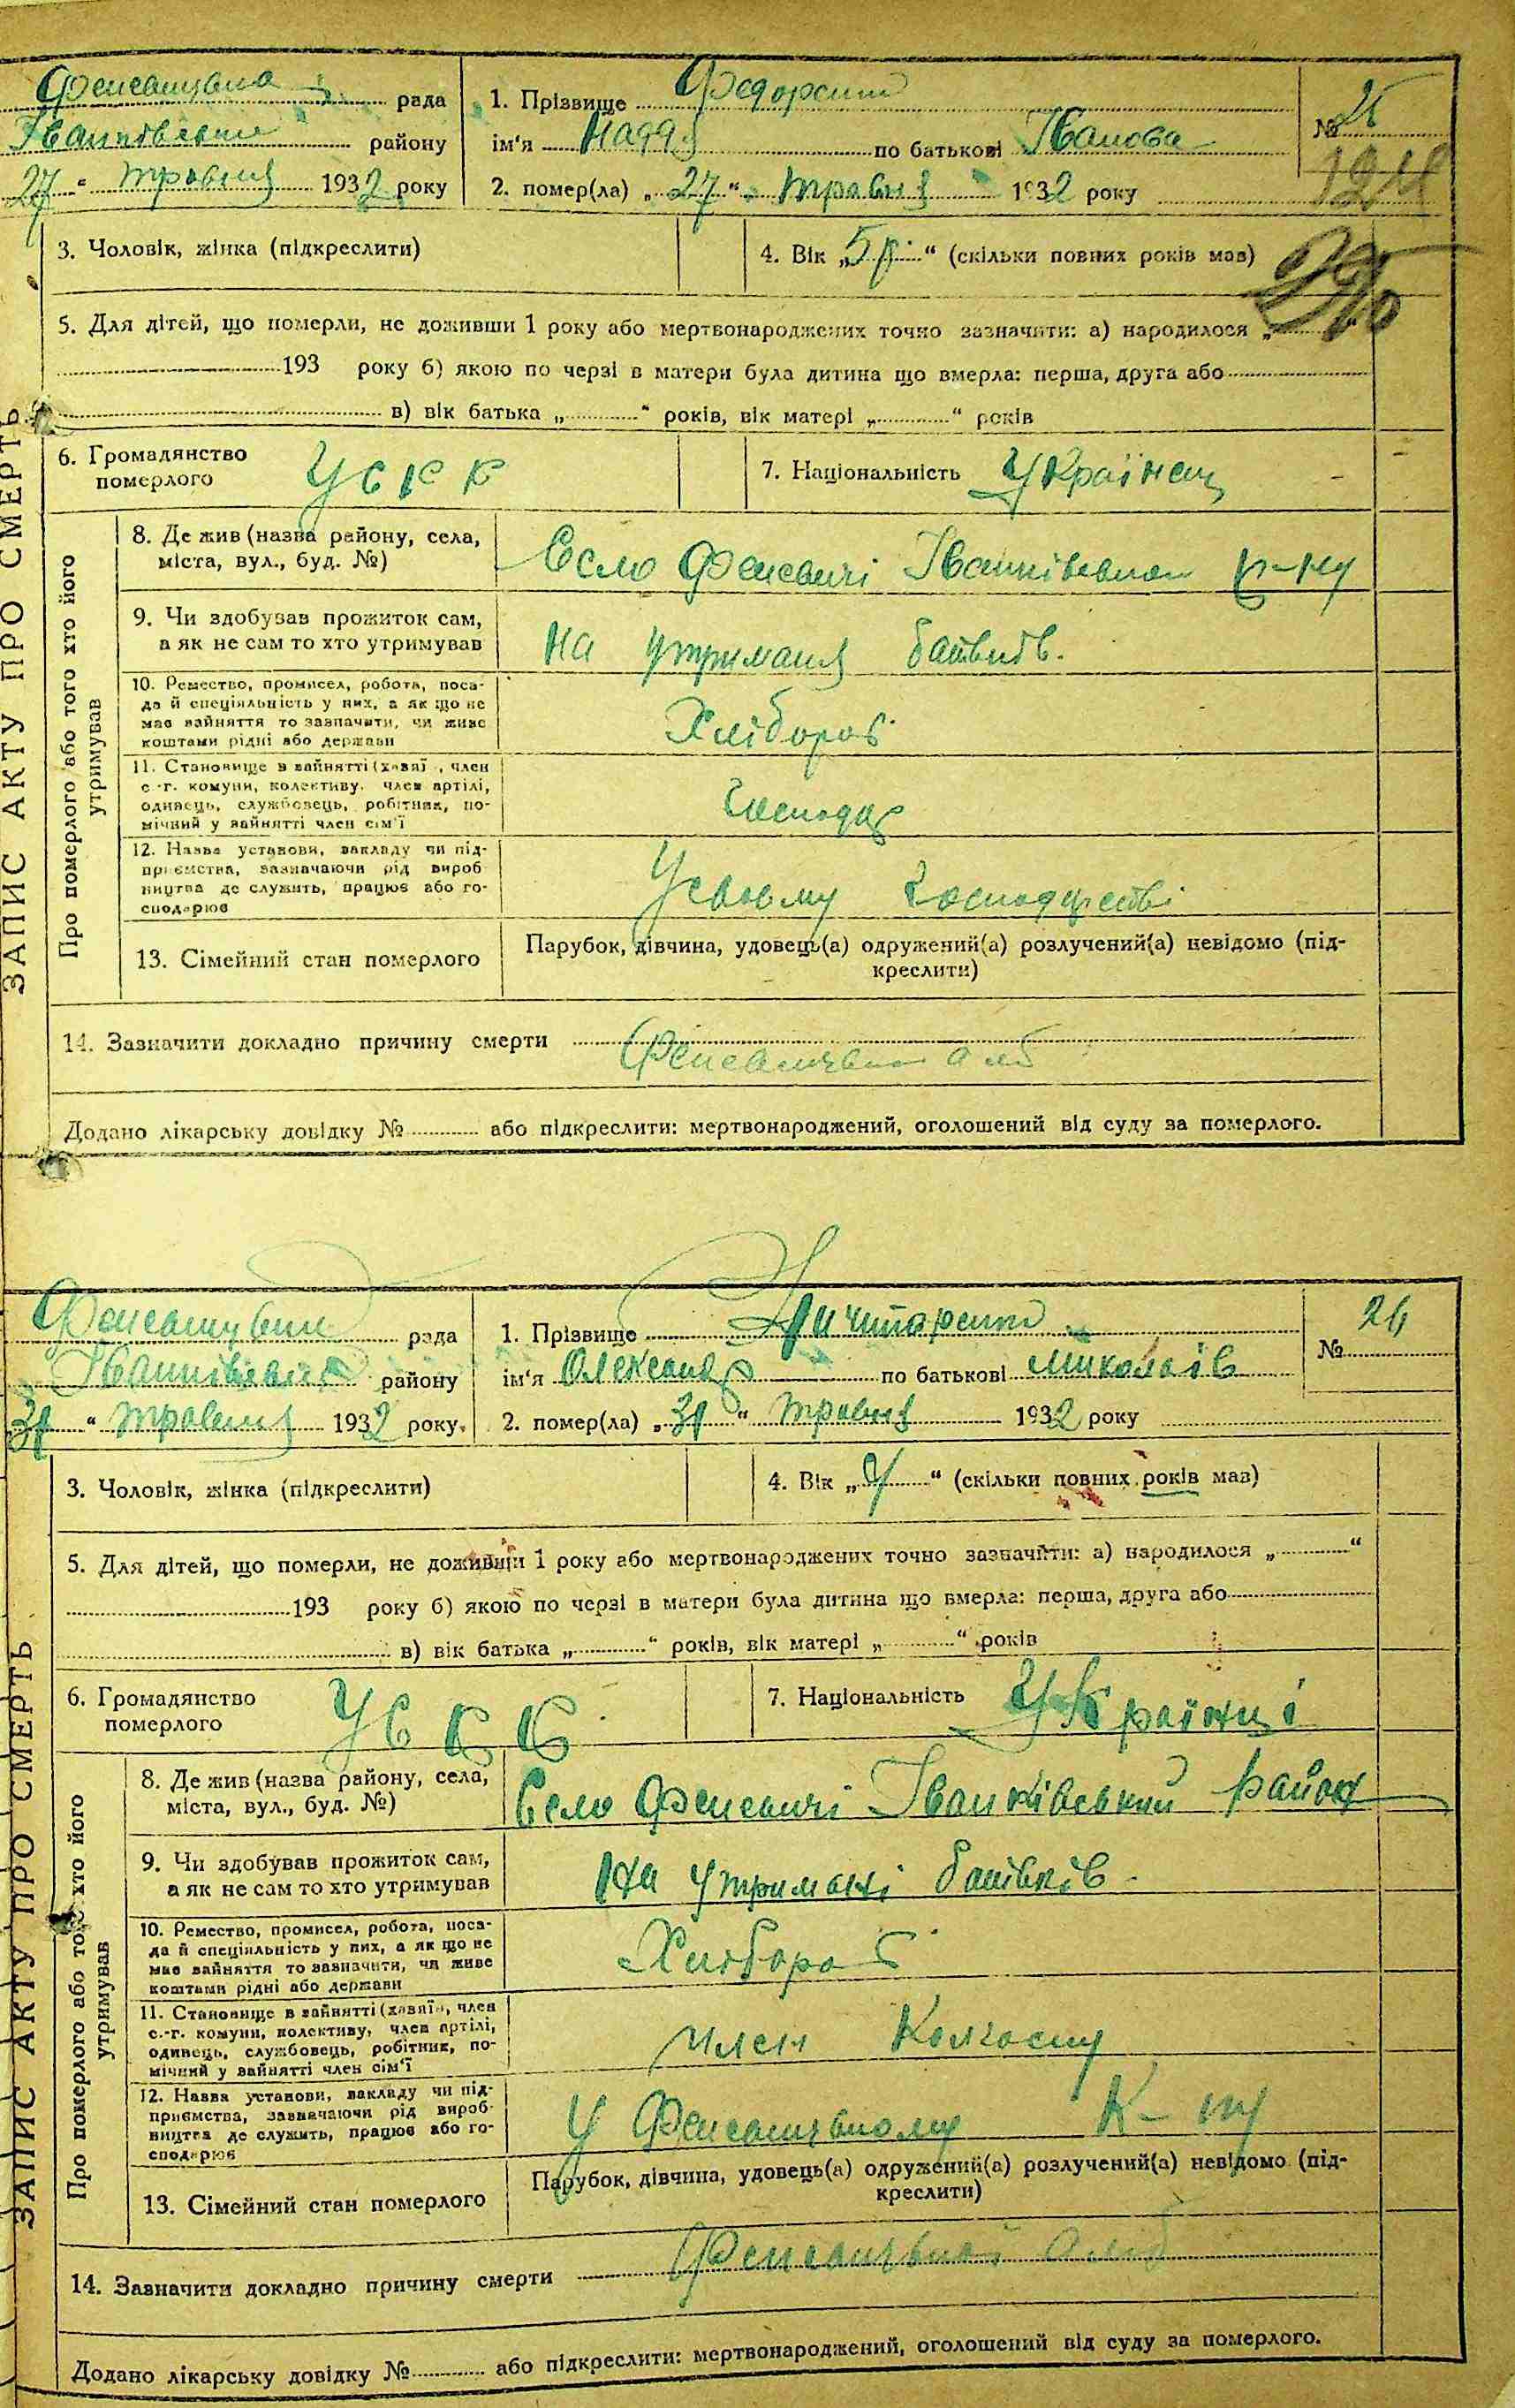 рада
району
27 " травня 1932 року
1. Прізвище Федоренко
ім'я Надя по батькові Іванова
2. помер(ла) „27" травня 1932 року
№ 25
3. Чоловік, жінка (підкреслити)
4. Вік „5 р." (скільки повних років мав)
5. Для дітей, що померли, не доживши 1 року або мертвонароджених точно зазначити: а) народилося „
193 року б) якою по черзі в матери була дитина що вмерла: перша, друга або
в) вік батька „ " років, вік матері „ " років
6. Громадянство померлого УСРР
7. Національність Українец
ЗАПИС АКТУ ПРО СМЕРТЬ
Про померлого або того хто його утримував
8. Де жив (назва району, села,
міста, вул., буд. №)
Село Феневичі Іванківського р-ну
9. Чи здобував прожиток сам,
а як не сам то хто утримував
На утриманя батьків.
10. Ремество, промисел, робота, поса-
да й спеціяльність у них, а як що не
має зайняття то зазначити, чи живе
коштами рідні або держави
Хлібороб
11. Становище в зайнятті (хазяї, член
с.-г. комуни, колективу, член артілі,
одинець, службовець, робітник, по-
мічний у зайнятті член сім'ї
Господар
12. Назва установи, закладу чи під-
приємства, зазначаючи рід вироб
ництва де служить, працює або го-
сподарює
У своєму господарстві
13. Сімейний стан померлого
Парубок, дівчина, удовець(а) одружений(а) розлучений(а) невідомо (під-
креслити)
14. Зазначити докладно причину смерти
Додано лікарську довідку № або підкреслити: мертвонароджений, оголошений від суду за померлого.
рада
району
31 " травня 1932 року
1. Прізвище
ім'я Олександр по батькові Миколаїв
2. помер(ла) „31" травня 1932 року
№ 26
3. Чоловік, жінка (підкреслити)
4. Вік „ " (скільки повних років мав)
5. Для дітей, що померли, не доживши 1 року або мертвонароджених точно зазначити: а) народилося „ "
193 року б) якою по черзі в матери була дитина що вмерла: перша, друга або
в) вік батька „ " років, вік матері „ " років
6. Громадянство померлого УСРР
7. Національність Українці
ЗАПИС АКТУ ПРО СМЕРТЬ
Про померлого або того хто його утримував
8. Де жив (назва району, села,
міста, вул., буд. №)
Село Феневичі Іванківський район
9. Чи здобував прожиток сам,
а як не сам то хто утримував
На утримані батьків
10. Ремество, промисел, робота, поса-
да й спеціяльність у них, а як що не
має зайняття то зазначити, чи живе
коштами рідні або держави
Хлібороб
11. Становище в зайнятті (хазяїн, член
с.-г. комуни, колективу, член артілі,
одинець, службовець, робітник, по-
мічний у зайнятті член сім'ї
член Колгоспу
12. Назва установи, закладу чи під-
приємства, зазначаючи рід вироб-
ництва де служить, працює або го-
сподарює
У
13. Сімейний стан померлого
Парубок, дівчина, удовець(а) одружений(а) розлучений(а) невідомо (під-
креслити)
14. Зазначити докладно причину смерти
Додано лікарську довідку № або підкреслити: мертвонароджений, оголошений від суду за померлого.